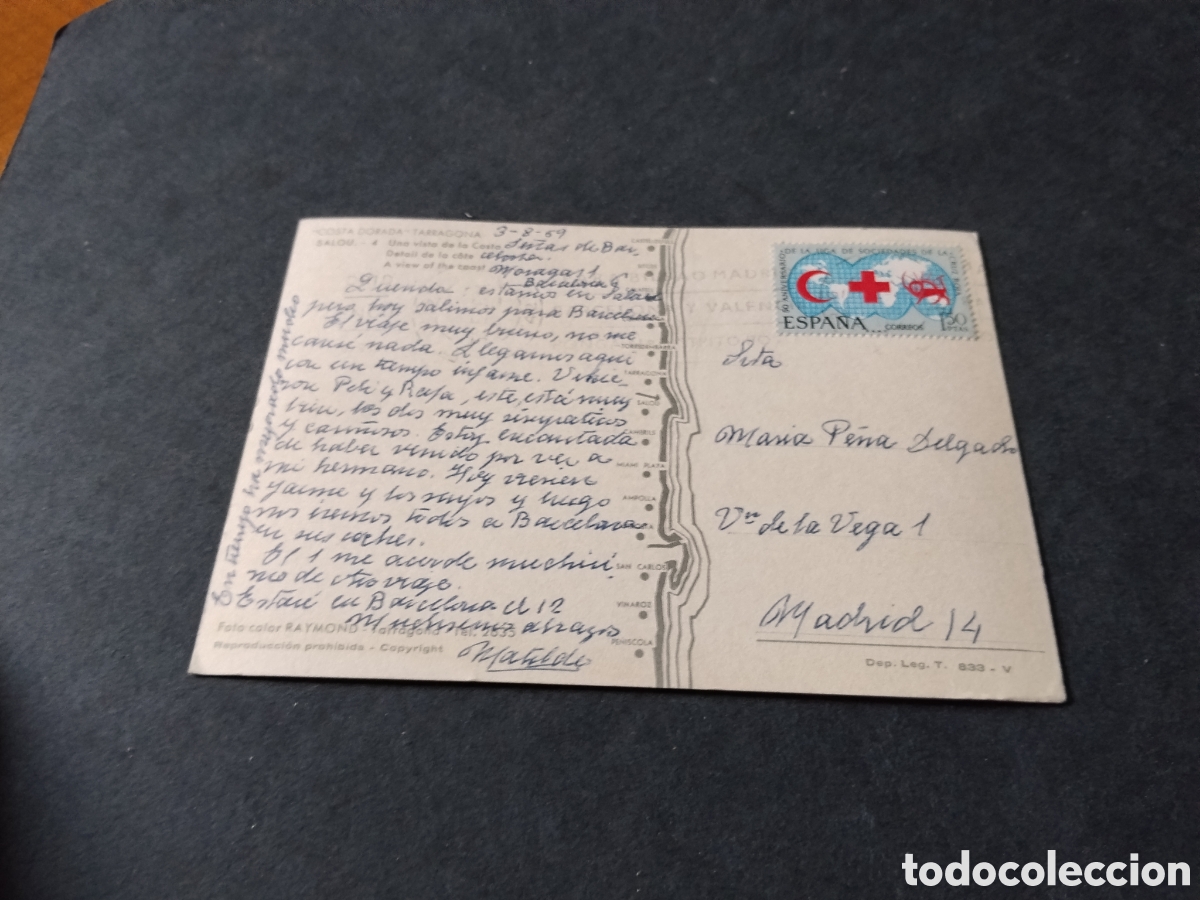 COSTA DORADA - TARRAGONA 3-8-69
SALOU. - 4 Una vista de la Costa
Detail de la côte
A view of the coast
Señas de Bar-
celona
Moragas 1
Barcelona 6
Querida: estamos en Salou
pero hoy salimos para Barcelona
El viaje muy bueno, no me
cansé nada. Llegamos aquí
con un tiempo infame. Vinie-
ron Poli y Rafa, este, está muy
bien, los dos muy simpáticos
y cariñosos. Estoy encantada
de haber venido por ver a
mi hermano. Hoy vienen
Jaime y los suyos y luego
nos iremos todos a Barcelona
en sus coches.
El 1 me acordé muchísi-
mo de
Estaré en Barcelona el 12
Muchísimos abrazos
Matilde
En tiempo ha mejorado mucho
Foto color RAYMOND - Tarragona - Tel. 2635
Reproducción prohibida - Copyright
TORREDEMBARRA
TARRAGONA
SALOU
CAMBRILS
MIAMI PLAYA
AMPOLLA
SAN CARLOS
VINAROZ
PEÑISCOLA
50 ANIVERSARIO DE LA LIGA DE SOCIEDADES DE LA CRUZ ROJA
ESPAÑA CORREOS 1,50
PTAS
Srta
Maria Peña Delgado
Vra de la Vega 1
Madrid 14
Dep. Leg. T. 833 - V
todocoleccion